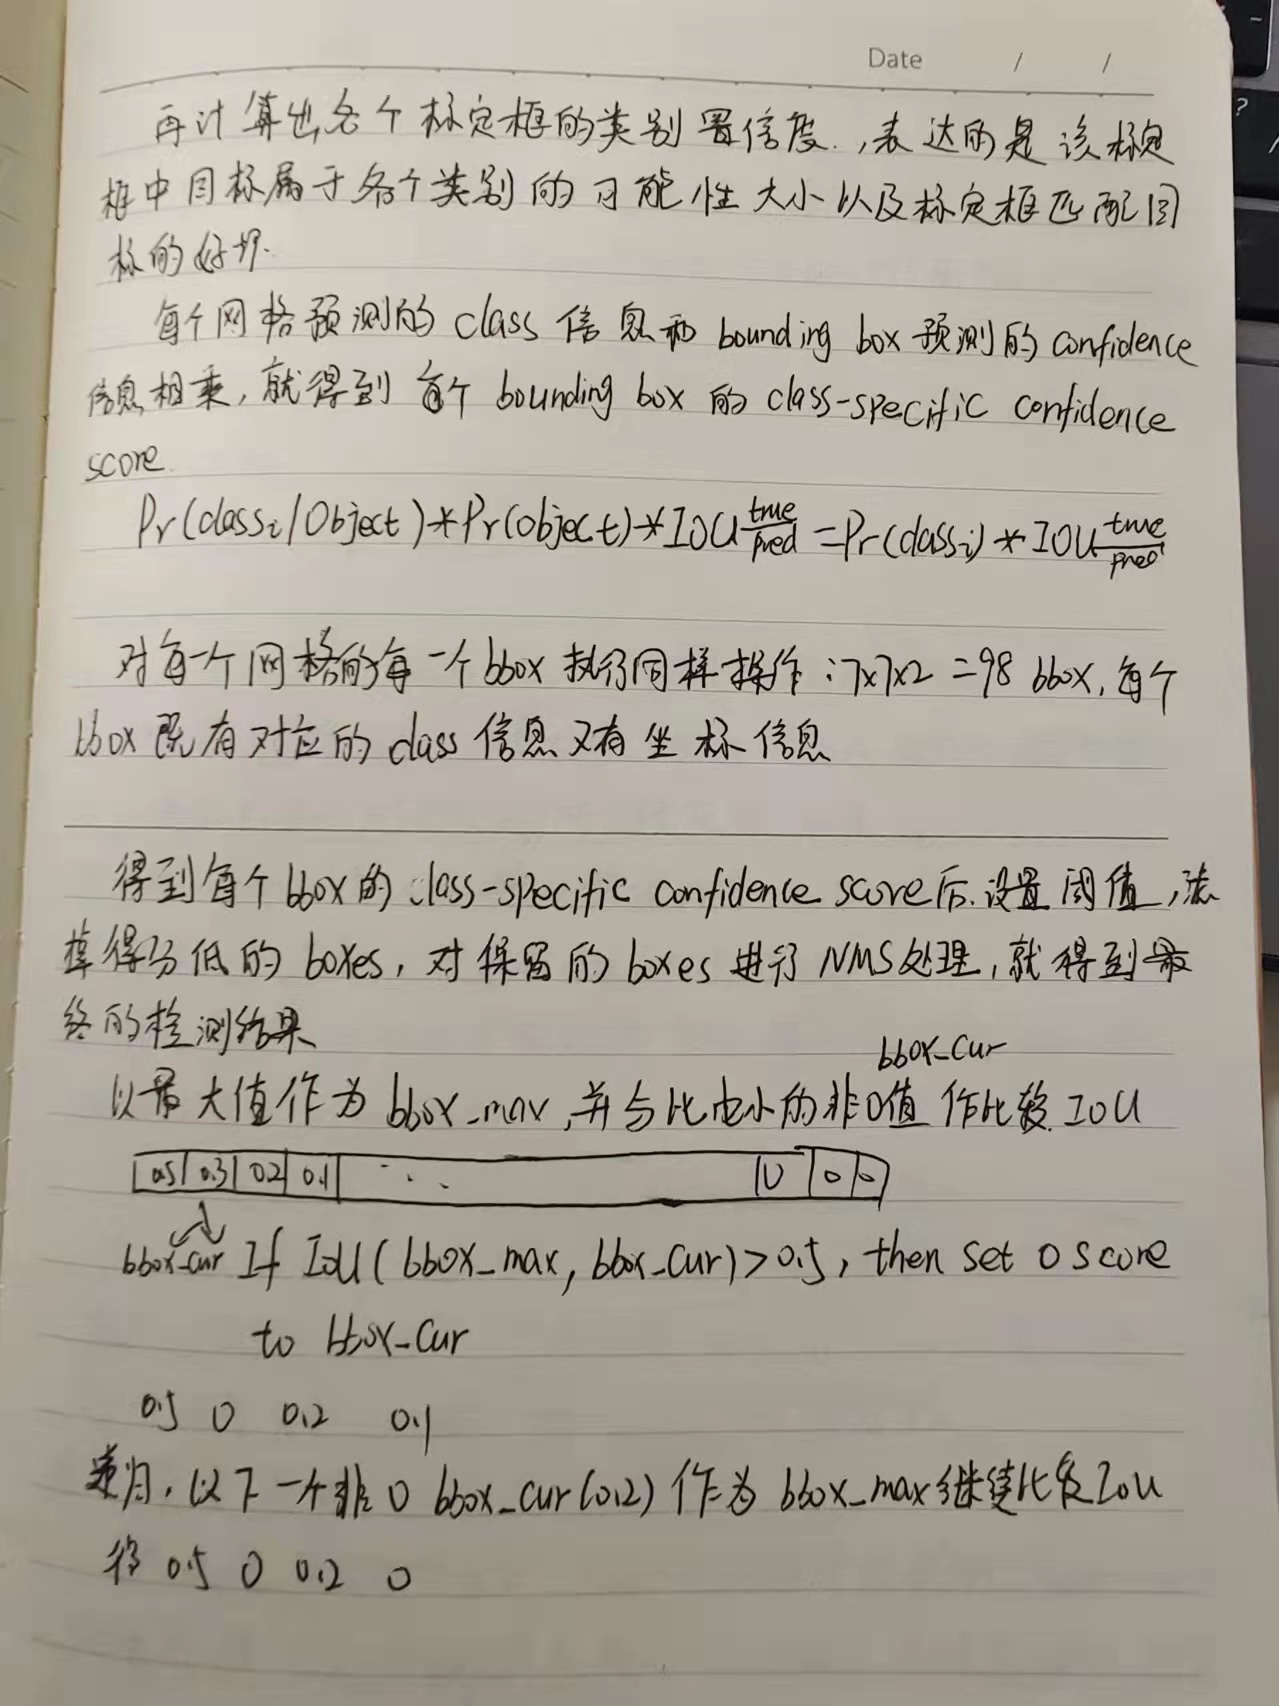 Date / /
再计算出各个标定框的类别置信度,表达的是该标定
框中目标属于各个类别的可能性大小以及标定框匹配目
标的好坏.
每个网格预测的class信息和bounding box预测的confidence
信息相乘,就得到每个bounding box的class-specific confidence
score.
Pr(classi/Object)*Pr(object)*IOU true/pred =Pr(classi)*IOU true/pred
对每一个网格的每一个bbox执行同样操作:7x7x2=98 bbox,每个
bbox既有对应的class信息又有坐标信息
得到每个bbox的class-specific confidence score后.设置阈值,滤
掉得分低的boxes,对保留的boxes进行NMS处理,就得到最
终的检测结果
bbox_cur
以最大值作为bbox_max,并与比它小的非0值作比较IoU
0.5 0.3 0.2 0.1 ... 0 0 0
bbox_cur If IoU(bbox_max, bbox_cur)>0.5, then set 0 score
to bbox_cur
0.5 0 0.2 0.1
递归,以下一个非0 bbox_cur(0.2)作为bbox_max继续比较IoU
得 0.5 0 0.2 0